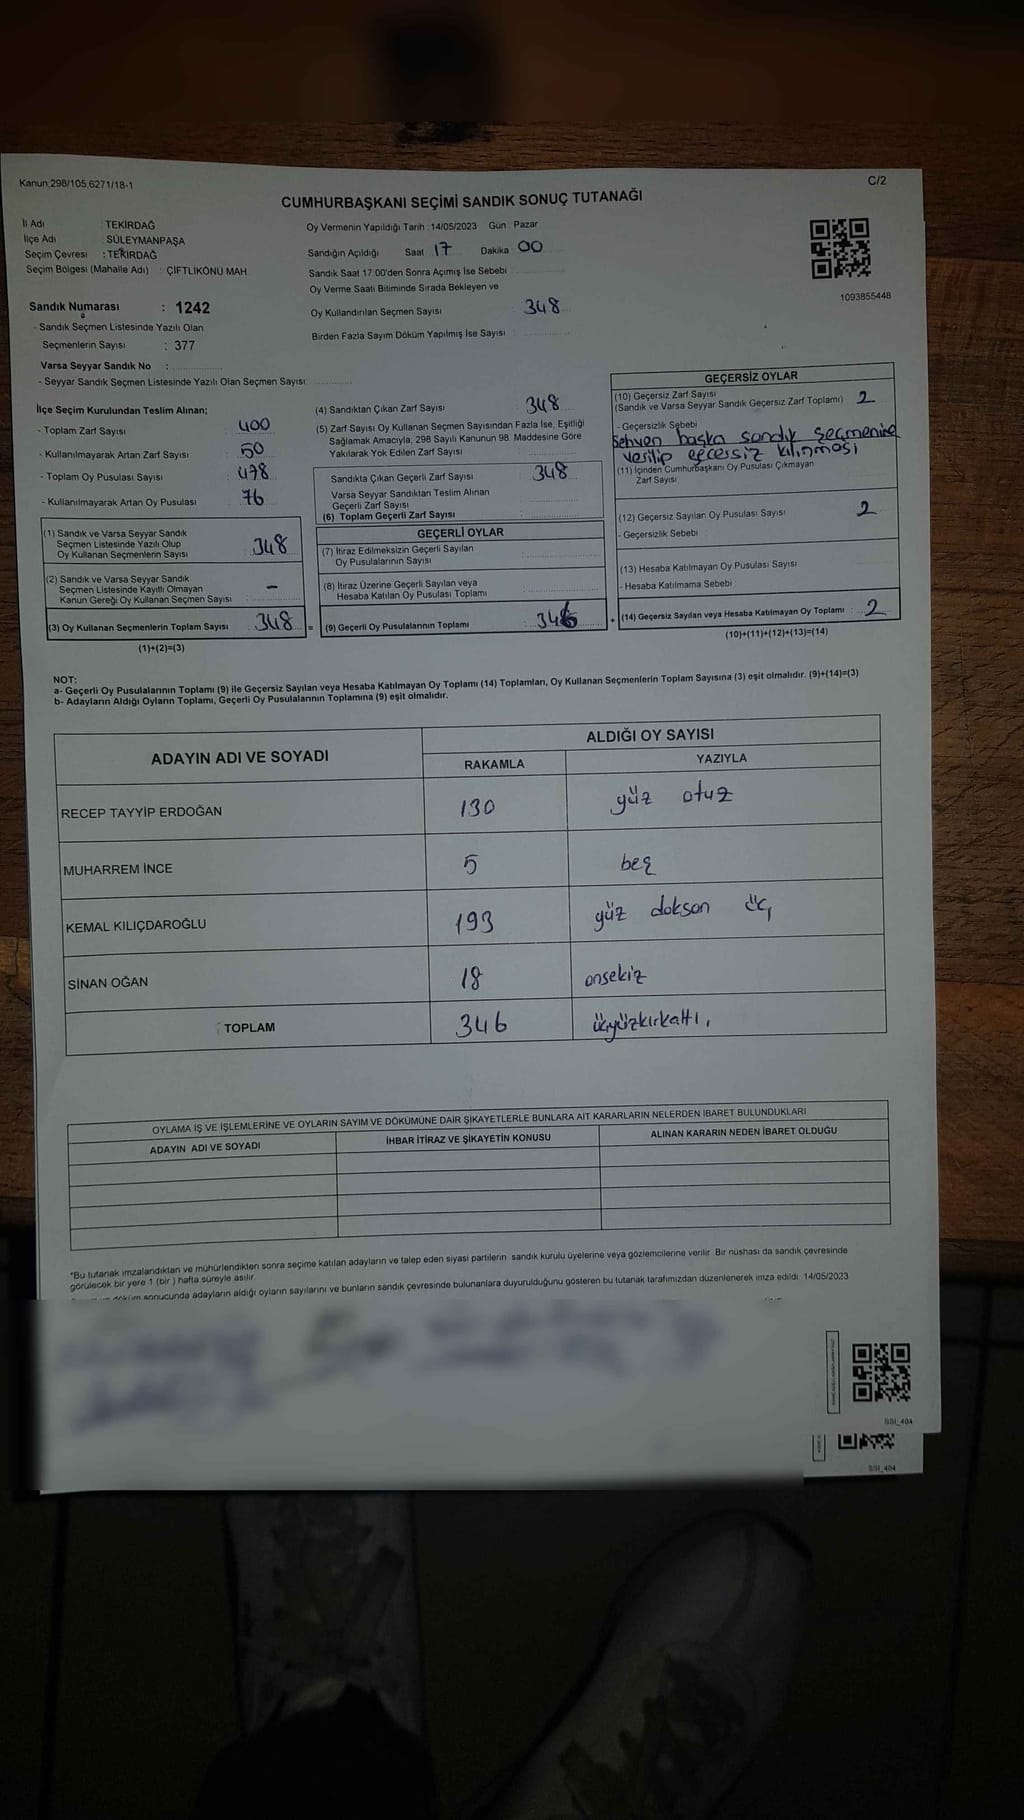 Kanun;298/105;6271/18-1
C/2
CUMHURBAŞKANI SEÇİMİ SANDIK SONUÇ TUTANAĞI
İl Adı : TEKİRDAĞ
İlçe Adı : SÜLEYMANPAŞA
Seçim Çevresi : TEKİRDAĞ
Seçim Bölgesi (Mahalle Adı) : ÇİFTLİKÖNÜ MAH.
Sandık Numarası : 1242
- Sandık Seçmen Listesinde Yazılı Olan
Seçmenlerin Sayısı : 377
Varsa Seyyar Sandık No :
- Seyyar Sandık Seçmen Listesinde Yazılı Olan Seçmen Sayısı
Oy Vermenin Yapıldığı Tarih : 14/05/2023 Gün : Pazar
Sandığın Açıldığı Saat : 17 Dakika : 00
Sandık Saat 17:00'den Sonra Açımış İse Sebebi
Oy Verme Saati Bitiminde Sırada Bekleyen ve
Oy Kullandırılan Seçmen Sayısı : 348
Birden Fazla Sayım Döküm Yapılmış İse Sayısı :
1093855448
İlçe Seçim Kurulundan Teslim Alınan;
- Toplam Zarf Sayısı : 400
- Kullanılmayarak Artan Zarf Sayısı : 50
- Toplam Oy Pusulası Sayısı : 478
- Kullanılmayarak Artan Oy Pusulası : 76
(1) Sandık ve Varsa Seyyar Sandık
Seçmen Listesinde Yazılı Olup
Oy Kullanan Seçmenlerin Sayısı : 348
(2) Sandık ve Varsa Seyyar Sandık
Seçmen Listesinde Kayıtlı Olmayan
Kanun Gereği Oy Kullanan Seçmen Sayısı : -
(3) Oy Kullanan Seçmenlerin Toplam Sayısı : 348 =
(1)+(2)=(3)
(4) Sandıktan Çıkan Zarf Sayısı : 348
(5) Zarf Sayısı Oy Kullanan Seçmen Sayısından Fazla İse, Eşitliği
Sağlamak Amacıyla, 298 Sayılı Kanunun 98. Maddesine Göre
Yakılarak Yok Edilen Zarf Sayısı :
Sandıkta Çıkan Geçerli Zarf Sayısı : 348
Varsa Seyyar Sandıktan Teslim Alınan
Geçerli Zarf Sayısı
(6) Toplam Geçerli Zarf Sayısı :
GEÇERLİ OYLAR
(7) İtiraz Edilmeksizin Geçerli Sayılan
Oy Pusulalarının Sayısı :
(8) İtiraz Üzerine Geçerli Sayılan veya
Hesaba Katılan Oy Pusulası Toplamı :
(9) Geçerli Oy Pusulalarının Toplamı : 346 +
GEÇERSİZ OYLAR
(10) Geçersiz Zarf Sayısı
(Sandık ve Varsa Seyyar Sandık Geçersiz Zarf Toplamı) : 2
- Geçersizlik Sebebi
Sehven başka sandık seçmenine
verilip geçersiz kılınması
(11) İçinden Cumhurbaşkanı Oy Pusulası Çıkmayan
Zarf Sayısı
(12) Geçersiz Sayılan Oy Pusulası Sayısı : 2
- Geçersizlik Sebebi :
(13) Hesaba Katılmayan Oy Pusulası Sayısı :
- Hesaba Katılmama Sebebi
(14) Geçersiz Sayılan veya Hesaba Katılmayan Oy Toplamı : 2
(10)+(11)+(12)+(13)=(14)
NOT:
a- Geçerli Oy Pusulalarının Toplamı (9) ile Geçersiz Sayılan veya Hesaba Katılmayan Oy Toplamı (14) Toplamları, Oy Kullanan Seçmenlerin Toplam Sayısına (3) eşit olmalıdır. (9)+(14)=(3)
b- Adayların Aldığı Oyların Toplamı, Geçerli Oy Pusulalarının Toplamına (9) eşit olmalıdır.
ADAYIN ADI VE SOYADI ALDIĞI OY SAYISI
RAKAMLA YAZIYLA
RECEP TAYYİP ERDOĞAN 130 yüz otuz
MUHARREM İNCE 5 beş
KEMAL KILIÇDAROĞLU 193 yüz doksan üç
SİNAN OĞAN 18 onsekiz
TOPLAM 346 üçyüzkırkaltı
OYLAMA İŞ VE İŞLEMLERİNE VE OYLARIN SAYIM VE DÖKÜMÜNE DAİR ŞİKAYETLERLE BUNLARA AİT KARARLARIN NELERDEN İBARET BULUNDUKLARI
ADAYIN ADI VE SOYADI İHBAR İTİRAZ VE ŞİKAYETİN KONUSU ALINAN KARARIN NEDEN İBARET OLDUĞU
*Bu tutanak imzalandıktan ve mühürlendikten sonra seçime katılan adayların ve talep eden siyasi partilerin sandık kurulu üyelerine veya gözlemcilerine verilir. Bir nüshası da sandık çevresinde
görülecek bir yere 1 (bir ) hafta süreyle asılır.
döküm sonucunda adayların aldığı oyların sayılarını ve bunların sandık çevresinde bulunanlara duyurulduğunu gösteren bu tutanak tarafımızdan düzenlenerek imza edildi. 14/05/2023
SSI_404
SSI_404